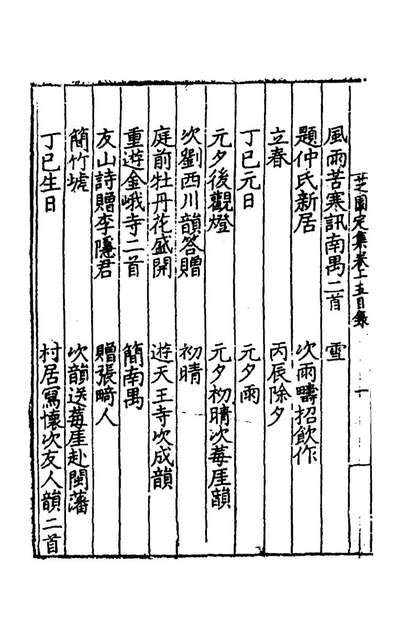 芝園定集卷十五目錄 一
風雨苦寒訊南禺二首 雪
題仲氏新居 次雨疇招飲作
立春 丙辰除夕
丁巳元日 元夕雨
元夕後觀燈 元夕初晴次莓厓韻
次劉西川韻答贈 初晴
庭前牡丹花盛開 遊天王寺次成韻
重遊金峨寺二首 簡南禺
友山詩贈李隱君 贈張畸人
簡竹墟 次韻送莓厓赴閩藩
丁巳生日 村居寫懷次友人韻二首